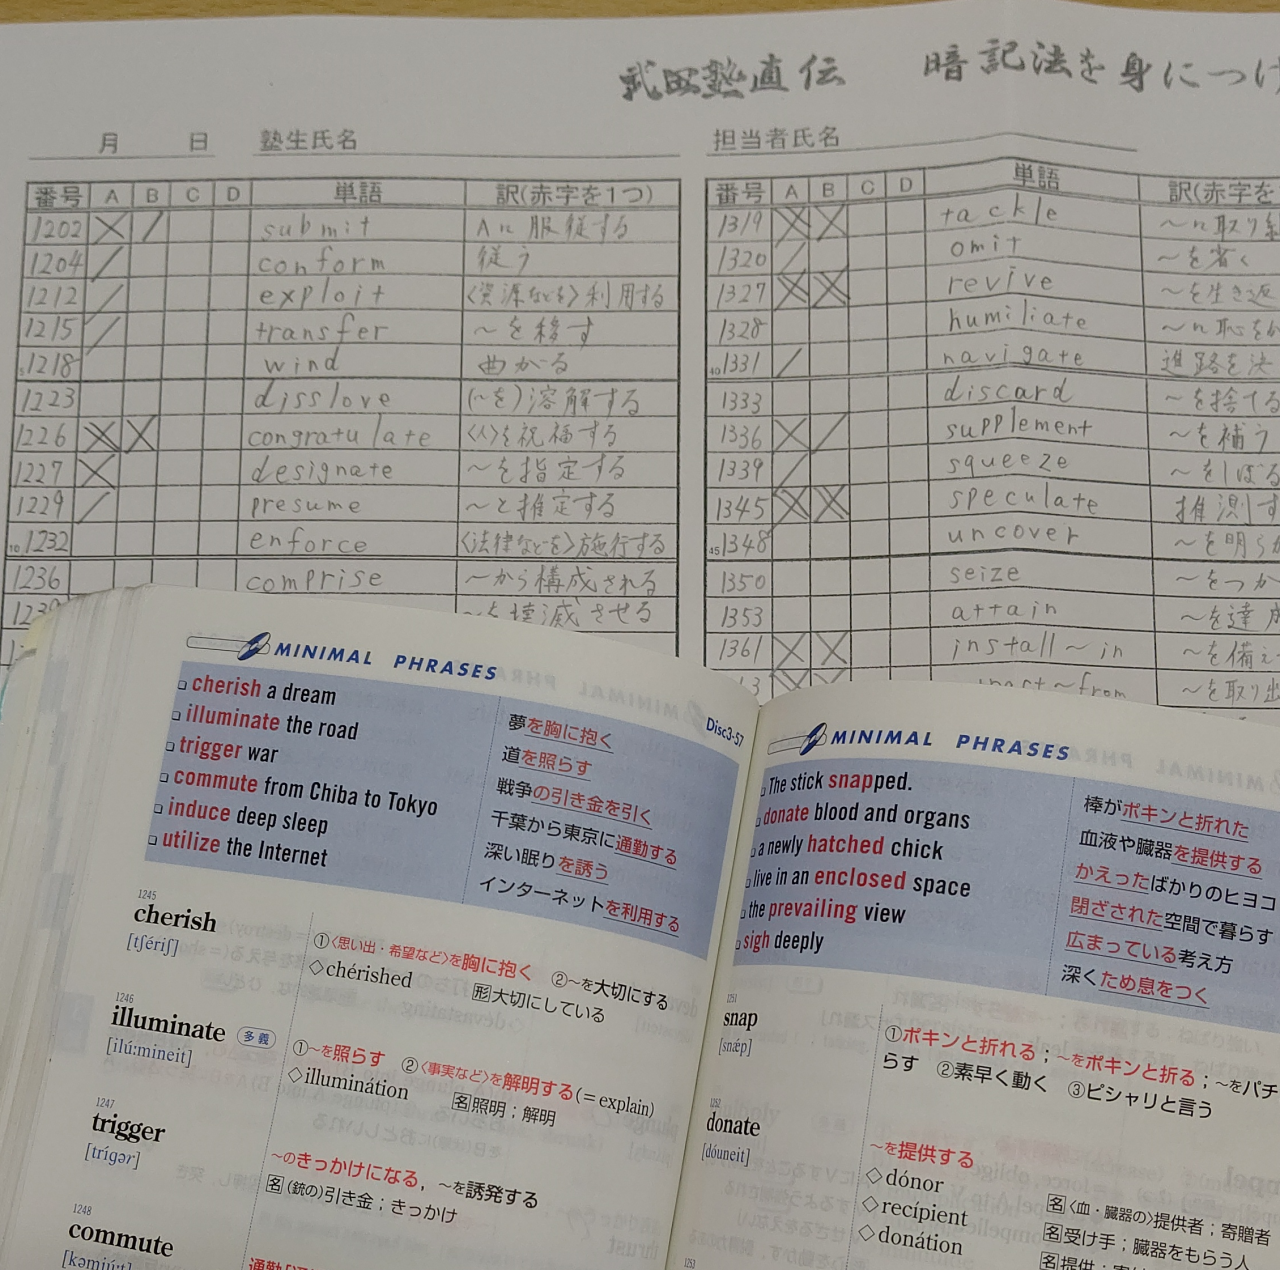 武田塾直伝 暗記法を身につけ
月 日 塾生氏名
番号 A B C D 単語 訳(赤字を1つ)
1202 submit Aに服従する
1204 conform 従う
1212 exploit 〈資源などを〉利用する
1215 transfer ～を移す
5 1218 wind 曲がる
1223 disslove (～を)溶解する
1226 congratulate 〈人〉を祝福する
1227 designate ～を指定する
1229 presume ～と推定する
10 1232 enforce 〈法律などを〉施行する
1236 comprise ～から構成される
させる
担当者氏名
番号 A B C D 単語 訳(赤字を
1319 tackle ～に取り
1320 omit ～を省く
1327 revive ～を生き返
1328 humiliate ～に恥を
40 1331 navigate 進路を決
1333 discard ～を捨てる
1336 supplement ～を補う
1339 squeeze ～をしぼる
1345 speculate 推測す
45 1348 uncover ～を明ら
1350 seize ～をつか
1353 attain ～を達成
1361 install ～ in ～を備え
3 ～from ～を取り出
MINIMAL PHRASES
Disc3-57
cherish a dream 夢を胸に抱く
illuminate the road 道を照らす
trigger war 戦争の引き金を引く
commute from Chiba to Tokyo 千葉から東京に通勤する
induce deep sleep 深い眠りを誘う
utilize the Internet インターネットを利用する
1245
cherish ①〈思い出・希望など〉を胸に抱く ②～を大切にする
[tʃériʃ] ◇chérished 形大切にしている
1246
illuminate 多義 ①～を照らす ②〈事実など〉を解明する(＝explain)
[ilú:mineit] ◇illuminátion 名照明；解明
1247
trigger ～のきっかけになる，～を誘発する
[trígər] 名(銃の)引き金；きっかけ
1248
commute
[kəmjú:t] 通勤
MINIMAL PHRASES
The stick snapped. 棒がポキンと折れた
donate blood and organs 血液や臓器を提供する
a newly hatched chick かえったばかりのヒヨコ
live in an enclosed space 閉ざされた空間で暮らす
the prevailing view 広まっている考え方
sigh deeply 深くため息をつく
1251
snap ①ポキンと折れる；～をポキンと折る；～をパチ
[snǽp] らす ②素早く動く ③ピシャリと言う
1252
donate ～を提供する
[dóuneit] ◇dónor 名〈血・臓器の〉提供者；寄贈者
◇recípient 名受け手；臓器をもらう人
◇donátion 名提供；
1253